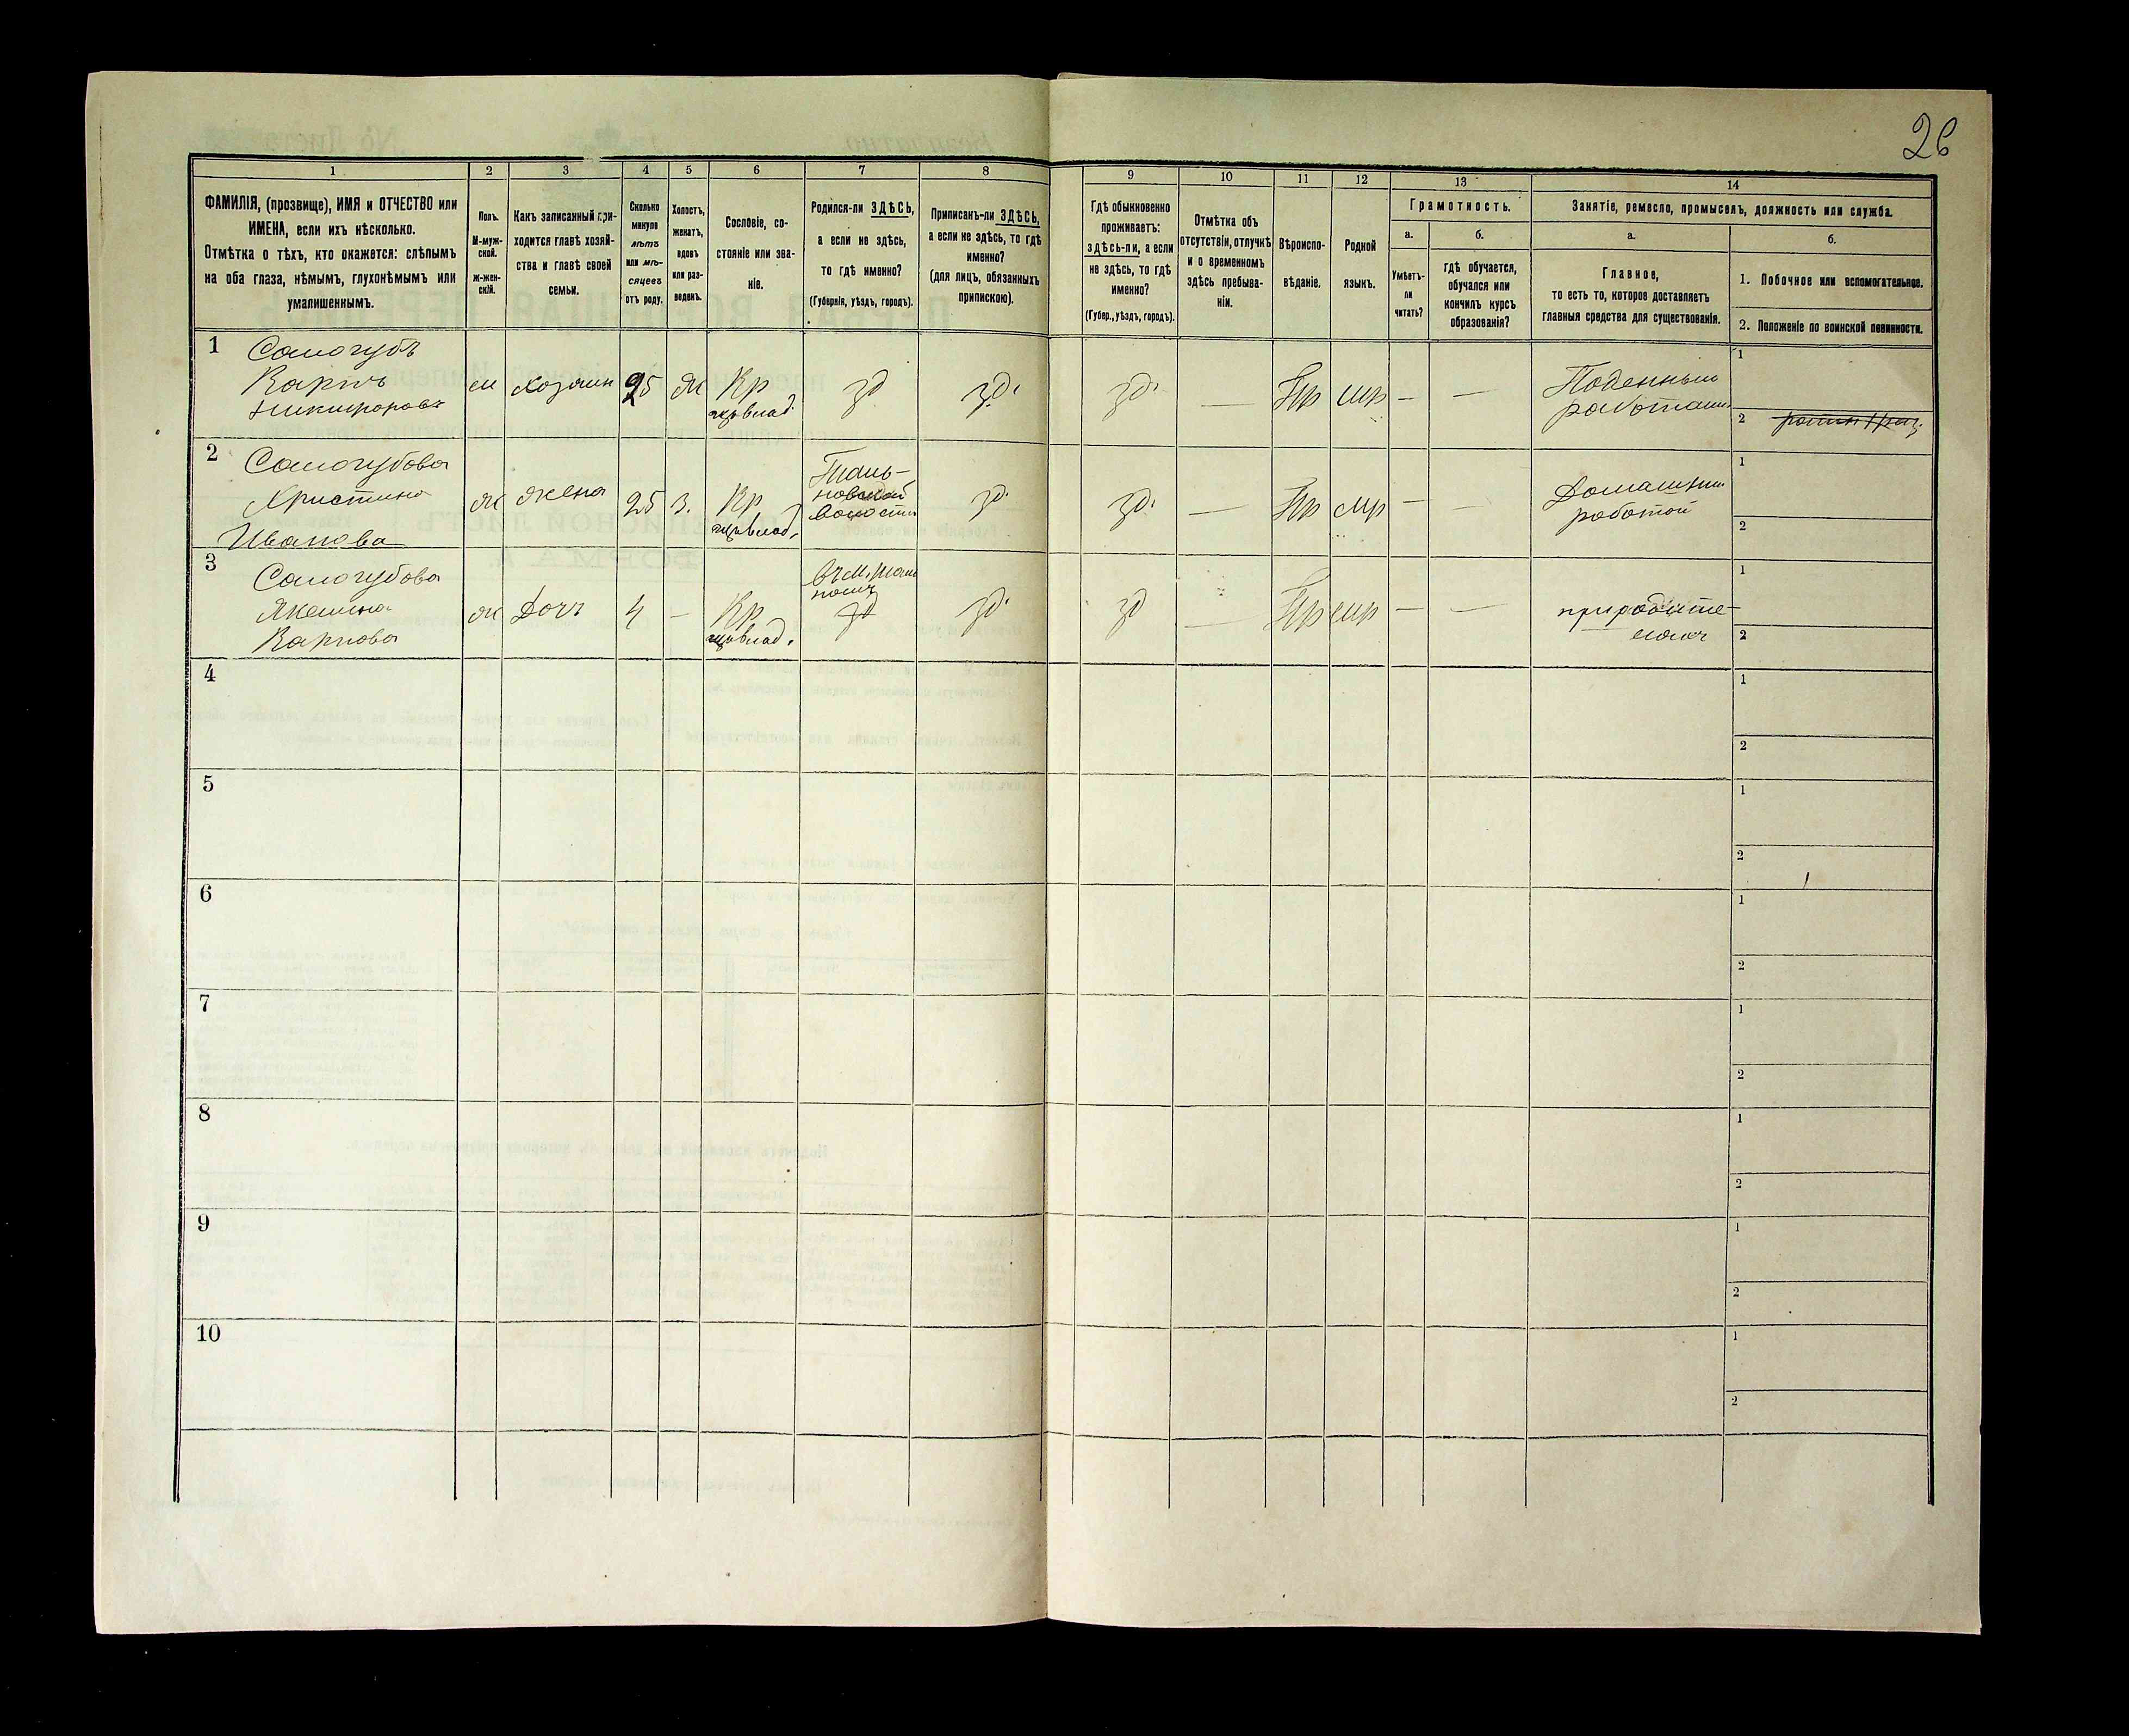 26
1 2 3 4 5 6 7 8 9 10 11 12 13 14
ФАМИЛІЯ, (прозвище), ИМЯ и ОТЧЕСТВО или
ИМЕНА, если ихъ нѣсколько.
Отмѣтка о тѣхъ, кто окажется: слѣпымъ
на оба глаза, нѣмымъ, глухонѣмымъ или
умалишеннымъ.
Полъ.
М-муж-
ской.
ж-жен-
скій.
Какъ записанный при-
ходится главѣ хозяй-
ства и главѣ своей
семьи.
Сколько
минуло
лѣтъ
или мѣ-
сяцевъ
отъ роду.
Холостъ,
женатъ,
вдовъ
или раз-
веденъ.
Сословіе, со-
стояніе или зва-
ніе.
Родился-ли ЗДѢСЬ,
а если не здѣсь,
то гдѣ именно?
(Губернія, уѣздъ, городъ).
Приписанъ-ли ЗДѢСЬ,
а если не здѣсь, то гдѣ
именно?
(для лицъ, обязанныхъ
припискою).
Гдѣ обыкновенно
проживаетъ:
здѣсь-ли, а если
не здѣсь, то гдѣ
именно?
(Губер., уѣздъ, городъ).
Отмѣтка объ
отсутствіи, отлучкѣ
и о временномъ
здѣсь пребыва-
ніи.
Вѣроиспо-
вѣданіе.
Родной
языкъ.
Грамотность.
а.
Умѣетъ-
ли
читать?
б.
гдѣ обучается,
обучался или
кончилъ курсъ
образованія?
Занятіе, ремесло, промыселъ, должность или служба.
а.
Главное,
то есть то, которое доставляетъ
главныя средства для существованія.
б.
1. Побочное или вспомогательное.
2. Положеніе по воинской повинности.
1 Самогубъ
Карпъ
Никифоровъ
м хозяинъ 25 ж Кр зд зд. зд. — Пр мр — — Поденный
1
2
2 Самогубова
Христина
Иванова
ж жена 25 з. Кр
волости
зд. зд. — Пр мр — — Домашнии
работой
1
2
3 Самогубова
Карпова
ж Дочь 4 — Кр зд зд. зд — Пр мр — — при родите-
ляхъ
1
2
4
1
2
5
1
2
6
1
2
7
1
2
8
1
2
9
1
2
10
1
2